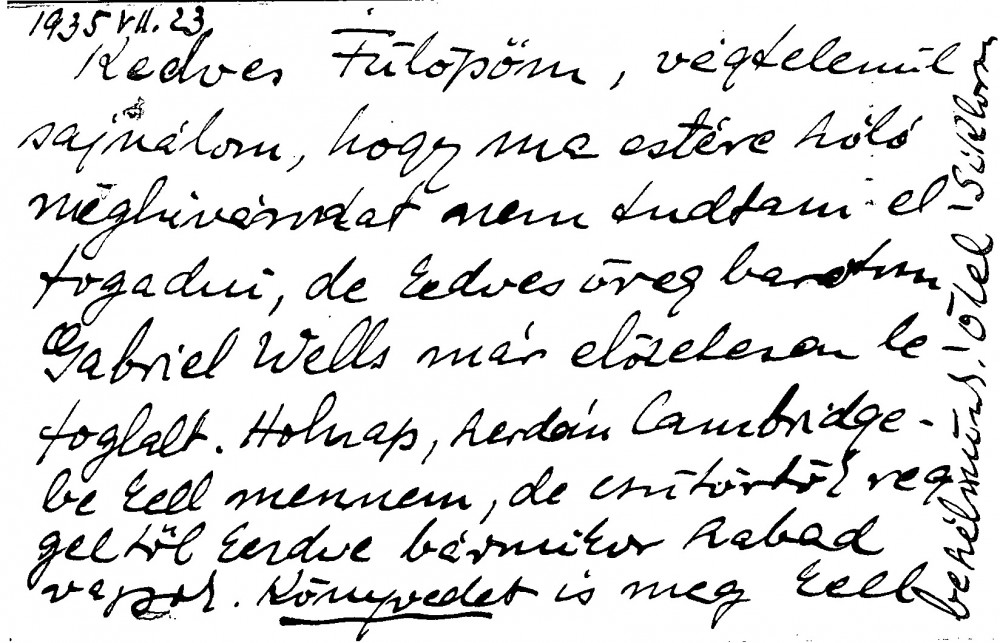 1935 VII. 23
Kedves Fülöpöm, végtelenül
sajnálom, hogy ma estére szóló
meghivásodat nem tudtam el-
fogadni, de kedves öreg barátom
Gabriel Wells már előzetesen le-
foglalt. Holnap, szerdán Cambridge-
be kell mennem, de csütörtök reg
geltől kezdve bármikor szabad
vagyok. Könyvedet is meg kell
beszélnünk. Ölel